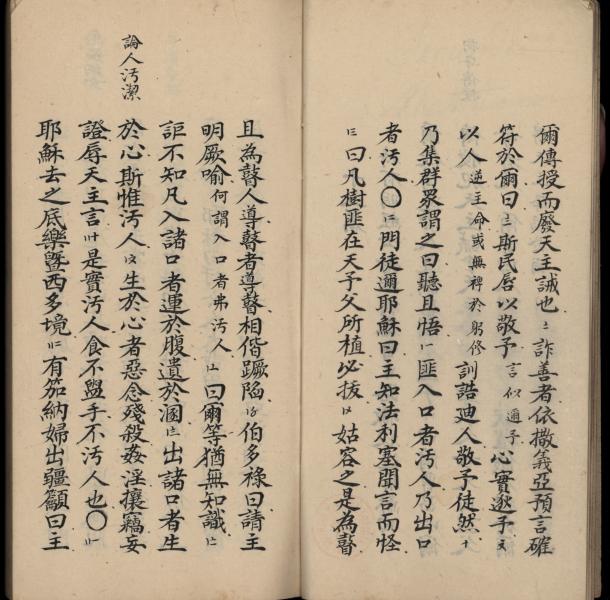 爾傳授而廢天主誡也詐善者依撒義亞預言確
符於爾曰斯民唇以敬予言似適予心實逖予
以人逆主命或無裨於躬修訓誥廸人敬予徒然十
乃集群眾謂之曰聽且悟匪入口者汚人乃出口
者汚人〇門徒邇耶穌曰主知法利塞聞言而怪
曰凡樹匪在天予父所植必拔姑容之是為瞽
且為瞽人導瞽者導瞽相偕蹶陷伯多祿曰請主
明厥喻何謂入口者弗汚人曰爾等猶無知識
詎不知凡入諸口者運於腹遺於溷出諸口者生
論人汚潔
於心斯惟汚人生於心者惡念殘殺姦淫攘竊妄
證辱天主言是實汚人食不盥手不汚人也〇
耶穌去之底樂曁西多境有笳納婦出疆籲曰主